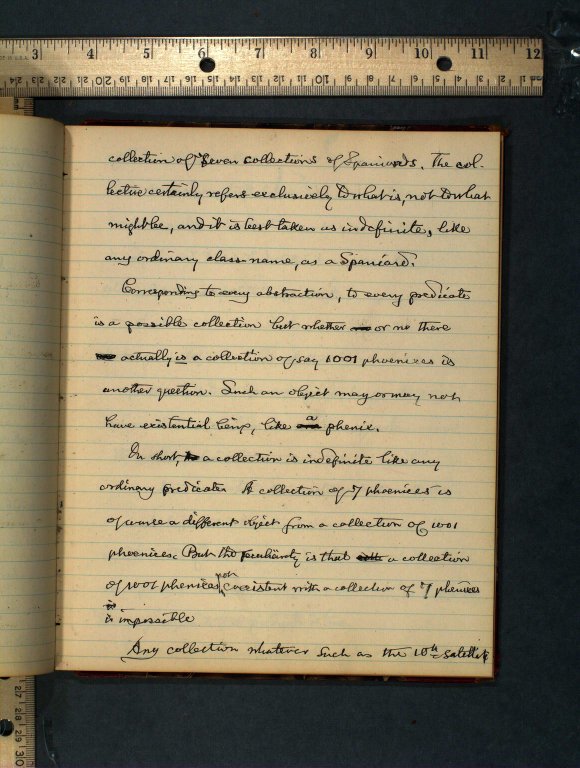 3 4 5 6 7 8 9 10 11 12
collection of seven collections of Spaniards. The col-
lective certainly refers exclusively to what is, not to what
might be, and it is best taken as indefinite, like
any ordinary class-name, as a Spaniard.
Corresponding to every abstraction, to every predicate
is a possible collection but whether or no there
actually is a collection of say 1001 phoenixes is
another question. Such an object may or may not
have existential being, like a phenix.
In short, a collection is indefinite like any
ordinary predicate. A collection of 7 phoenixes is
of course a different object from a collection of 1001
phoenixes. But the peculiarity is that a collection
of 1001 phenixes not coexistent with a collection of 7 phenixes
is impossible
Any collection whatever such as the 10th satellite
27 28 29 30